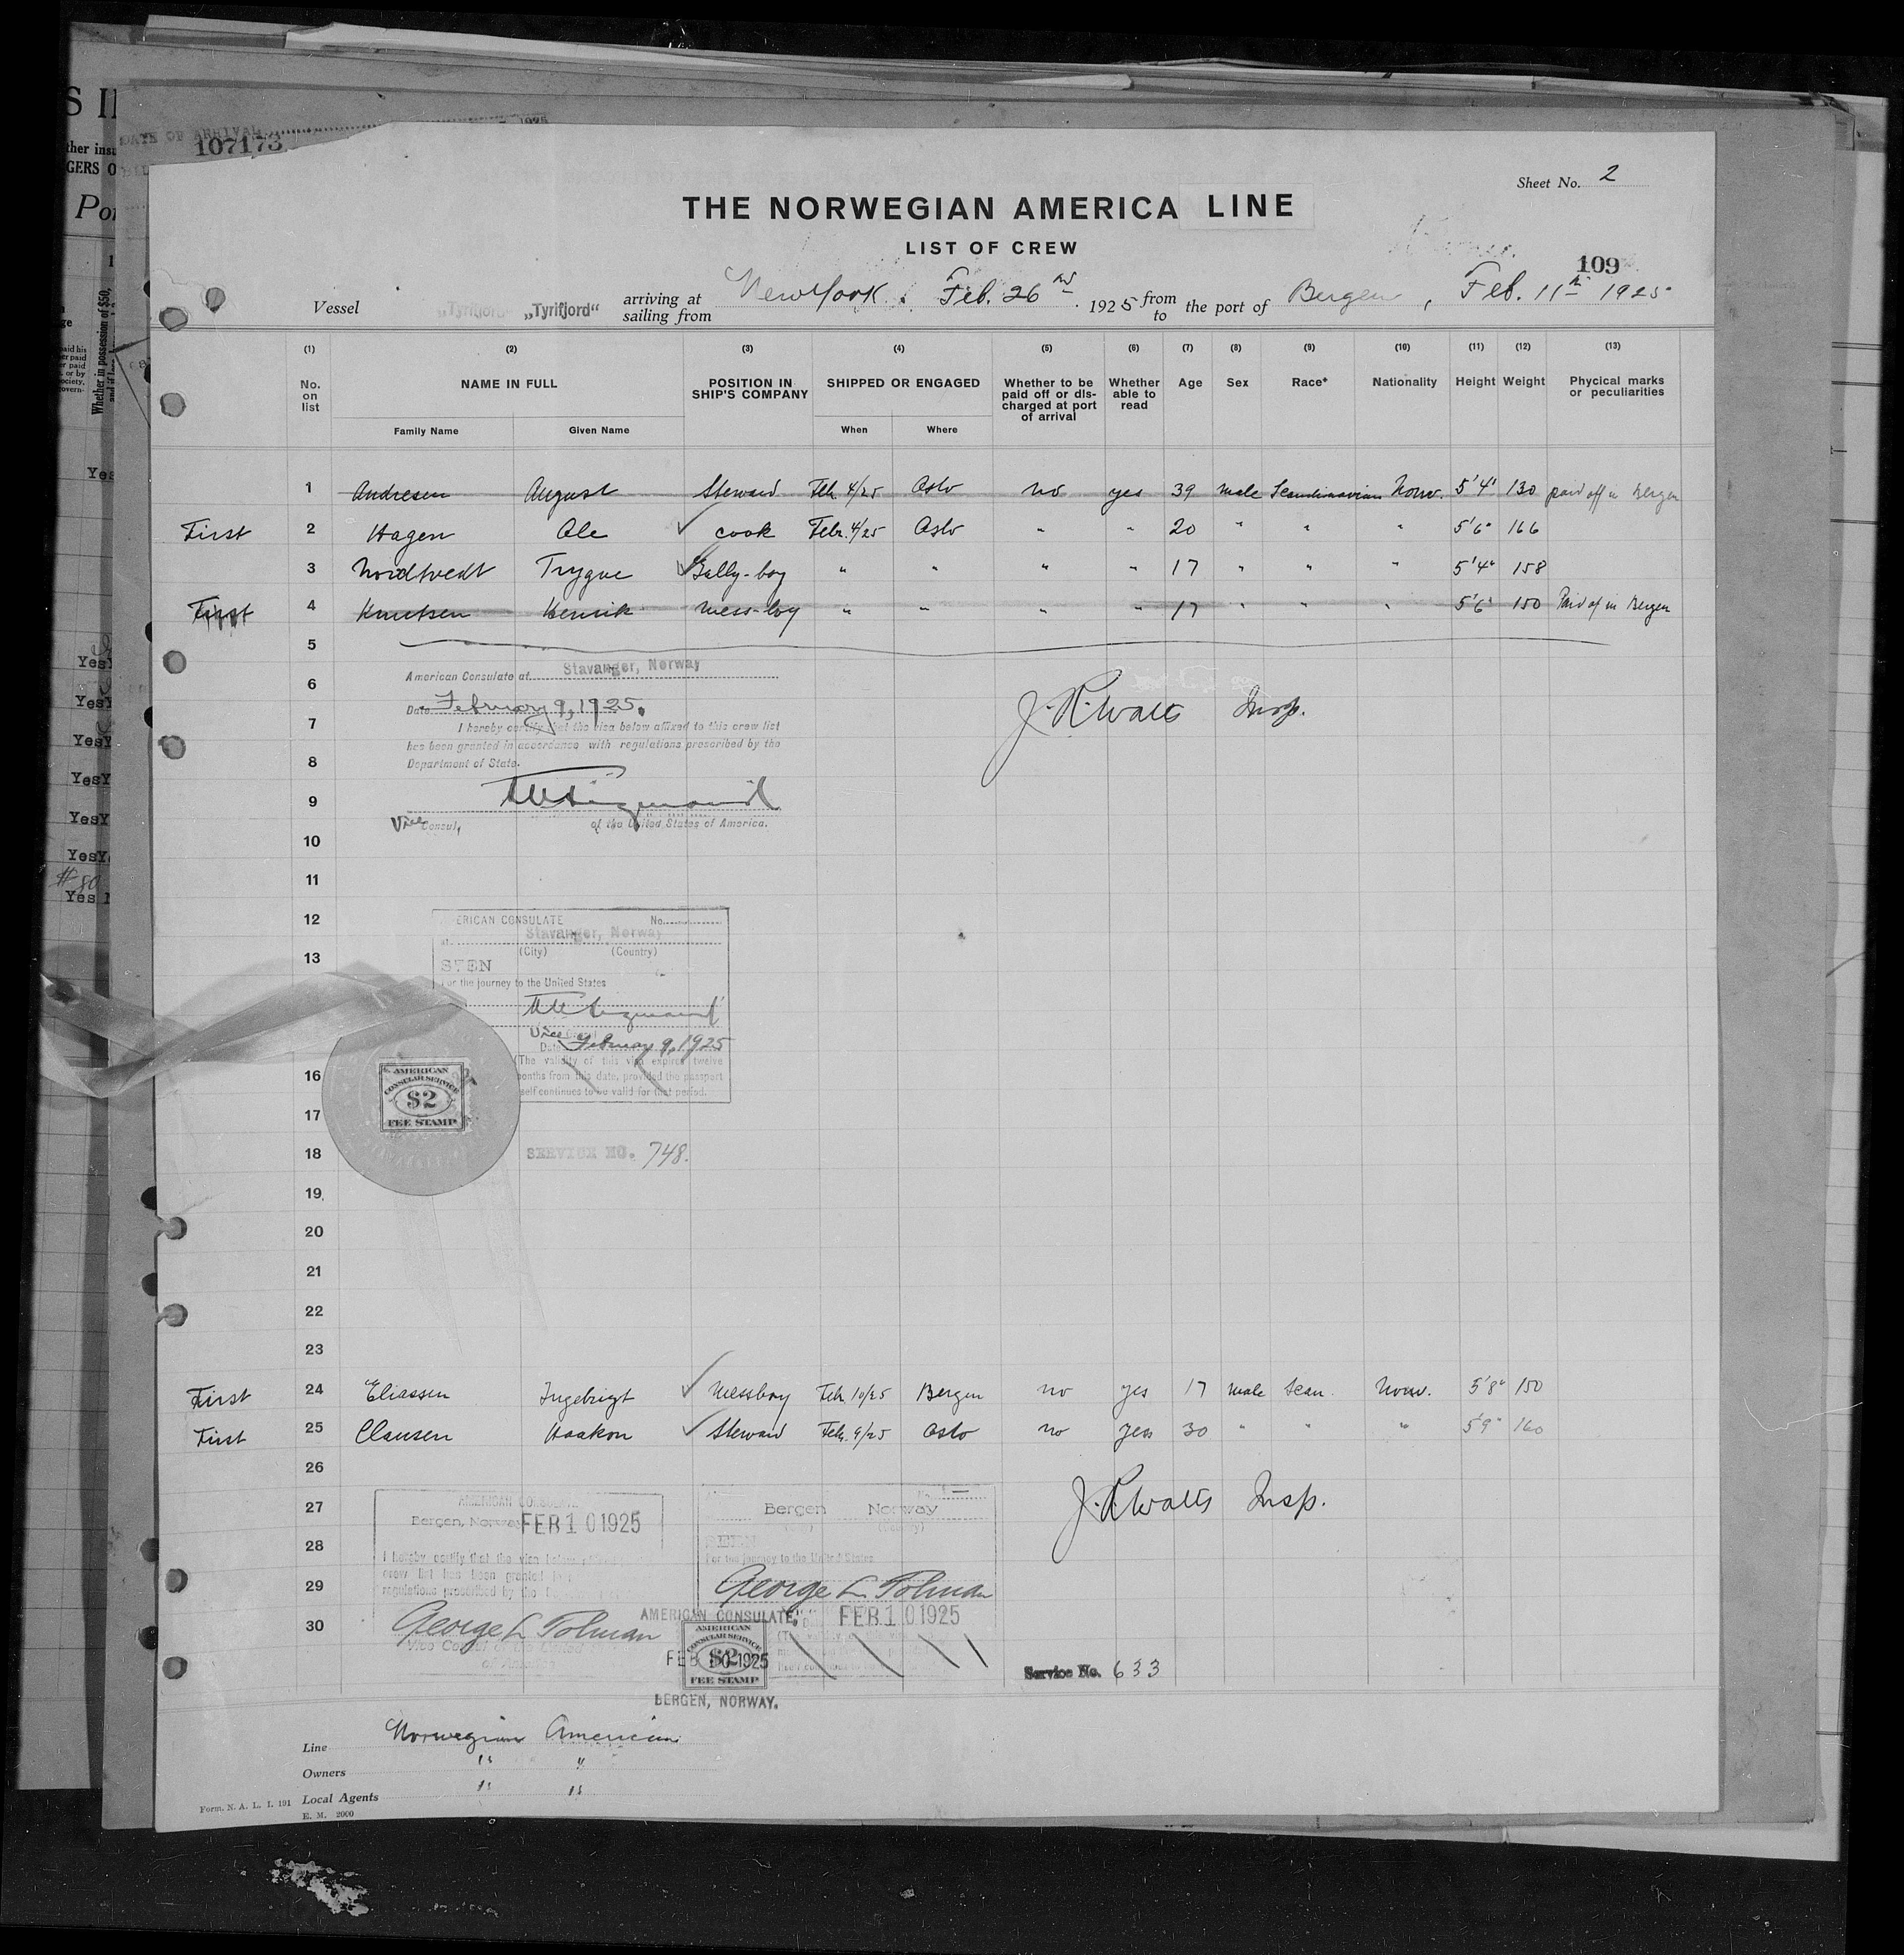 DATE OF ARRIVAL
107173
Sheet No. 2
THE NORWEGIAN AMERICA LINE
LIST OF CREW
109
Vessel „Tyrifjord“ arriving at sailing from New York, Feb. 26 1925 from to the port of Bergen, Feb. 11th 1925
(1) (2) (3) (4) (5) (6) (7) (8) (9) (10) (11) (12) (13)
No. on list NAME IN FULL POSITION IN SHIP'S COMPANY SHIPPED OR ENGAGED Whether to be paid off or discharged at port of arrival Whether able to read Age Sex Race* Nationality Height Weight Physical marks or peculiarities
Family Name Given Name When Where
1 Andresen August Steward Feb. 4/25 Oslo no yes 39 male Scandinavian Norw. 5'4" 130 paid off in Bergen
First 2 Hagen Ole cook Febr. 4/25 Oslo " " 20 " " " 5'6" 166
3 Nordtvedt Trygve Gally-boy " " " " 17 " " " 5'4" 158
First 4 Knutsen Henrik mess-boy " " " " 17 " " " 5'6" 150 Paid of in Bergen
5
American Consulate at Stavanger, Norway
6
Date February 9, 1925.
J. R. Watts Insp.
7
I hereby certify that the visa below affixed to this crew list
has been granted in accordance with regulations prescribed by the
8
Department of State.
9
Vice Consul, of the United States of America.
10
11
12
AMERICAN CONSULATE No.
at Stavanger, Norway
13
(City) (Country)
SEEN
For the journey to the United States
Vice Consul
Date February 9, 1925
(The validity of this visa expires twelve
16
months from this date, provided the passport
itself continues to be valid for that period.
AMERICAN CONSULAR SERVICE $2 FEE STAMP
17
18
SERVICE NO. 748.
19
20
21
22
23
First 24 Eliassen Ingebrigt Messboy Feb. 10/25 Bergen no yes 17 male Scan. Norw. 5'8" 150
First 25 Clausen Haakon Steward Feb. 9/25 Oslo no yes 30 " " " 5'9" 160
26
AMERICAN CONSULATE
27
Bergen, Norway FEB 10 1925
Bergen Norway
J. R. Watts Insp.
28
SEEN
I hereby certify that the visa below
For the journey to the United States
crew list has been granted
29
regulations prescribed by the
George L Tolman
30
AMERICAN CONSULATE, FEB 10 1925
George L Tolman
Vice Consul of the United
of America
FEB 10 1925
AMERICAN CONSULAR SERVICE $2 FEE STAMP
BERGEN, NORWAY.
Service No. 633
Line Norwegian American
Owners " "
Local Agents " "
Form. N. A. L. I. 191
E. M. 2000